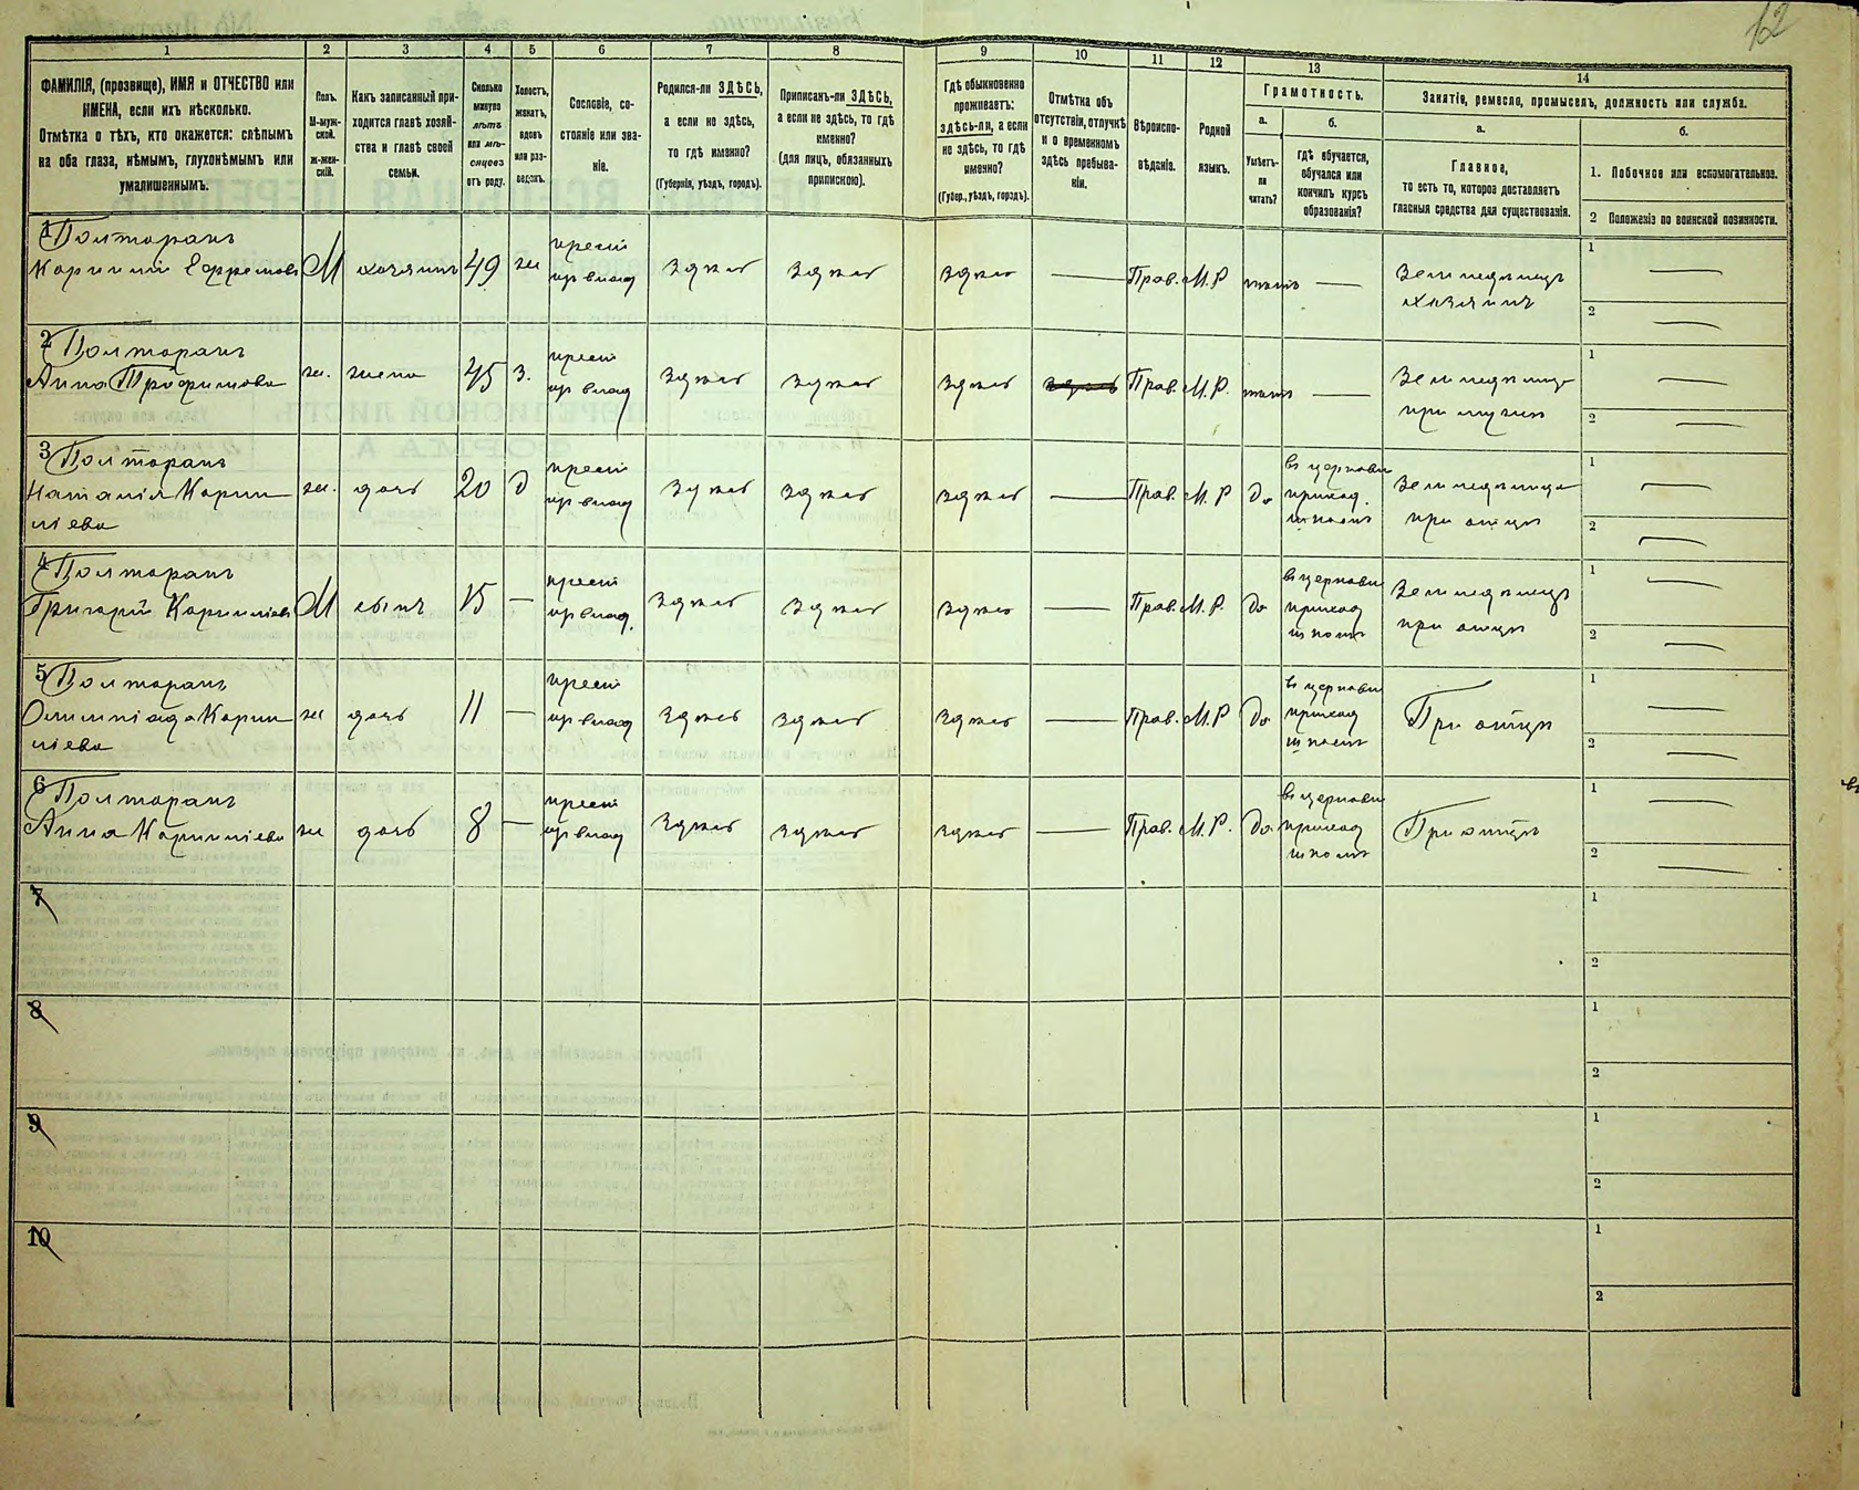 12
1
2
3
4
5
6
7
8
9
10
11
12
13
14
ФАМИЛІЯ, (прозвище), ИМЯ и ОТЧЕСТВО или
ИМЕНА, если ихъ нѣсколько.
Отмѣтка о тѣхъ, кто окажется: слѣпымъ
на оба глаза, нѣмымъ, глухонѣмымъ или
умалишеннымъ.
Полъ.
М-муж-
ской.
Ж-жен-
скій.
Какъ записанный при-
ходится главѣ хозяй-
ства и главѣ своей
семьи.
Сколько
минуло
лѣтъ
или мѣ-
сяцевъ
отъ роду.
Холостъ,
женатъ,
вдовъ
или раз-
веденъ.
Сословіе, со-
стояніе или зва-
ніе.
Родился-ли ЗДѢСЬ,
а если не здѣсь,
то гдѣ именно?
(Губернія, уѣздъ, городъ).
Приписанъ-ли ЗДѢСЬ,
а если не здѣсь, то гдѣ
именно?
(для лицъ, обязанныхъ
припискою).
Гдѣ обыкновенно
проживаетъ:
здѣсь-ли, а если
не здѣсь, то гдѣ
именно?
(Губер., уѣздъ, городъ).
Отмѣтка объ
отсутствіи, отлучкѣ
и о временномъ
здѣсь пребыва-
ніи.
Вѣроиспо-
вѣданіе.
Родной
языкъ.
Грамотность.
а.
Умѣетъ-
ли
читать?
б.
гдѣ обучается,
обучался или
кончилъ курсъ
образованія?
Занятіе, ремесло, промыселъ, должность или служба.
а.
Главное,
то есть то, которое доставляетъ
главныя средства для существованія.
б.
1. Побочное или вспомогательное.
2 Положеніе по воинской повинности.
1 Полторакъ
Корнилій Ефремовъ М хозяинъ 49 ж крест здѣсь здѣсь здѣсь — Прав. М.Р — Земледѣлецъ
хозяинъ
1 —
2 —
2 Полторакъ
Анна Трофимова ж. жена 45 з. крест здѣсь здѣсь здѣсь Прав. М.Р. — Земледѣлица
при мужѣ
1 —
2 —
3 Полторакъ
Наталія Корни
ліева ж. дочь 20 д крест здѣсь здѣсь здѣсь — Прав. М.Р да въ церковн
приход.
школѣ
Земледѣлица
при отцѣ
1 —
2 —
4 Полторакъ
Григорій Корниліевъ М сынъ 15 — крест здѣсь здѣсь здѣсь — Прав. М.Р. да въ церковн
приход
школѣ
Земледѣлецъ
при отцѣ
1 —
2 —
5 Полторакъ
Олимпіада Корни
ліева ж дочь 11 — крест здѣсь здѣсь здѣсь — Прав. М.Р да въ церковн
приход
школѣ
При отцѣ
1 —
2 —
6 Полторакъ
Анна Корниліева ж дочь 8 — крест здѣсь здѣсь здѣсь — Прав. М.Р. да въ церковн
приход
школѣ
При отцѣ
1 —
2 —
7
1
2
8
1
2
9
1
2
10
1
2